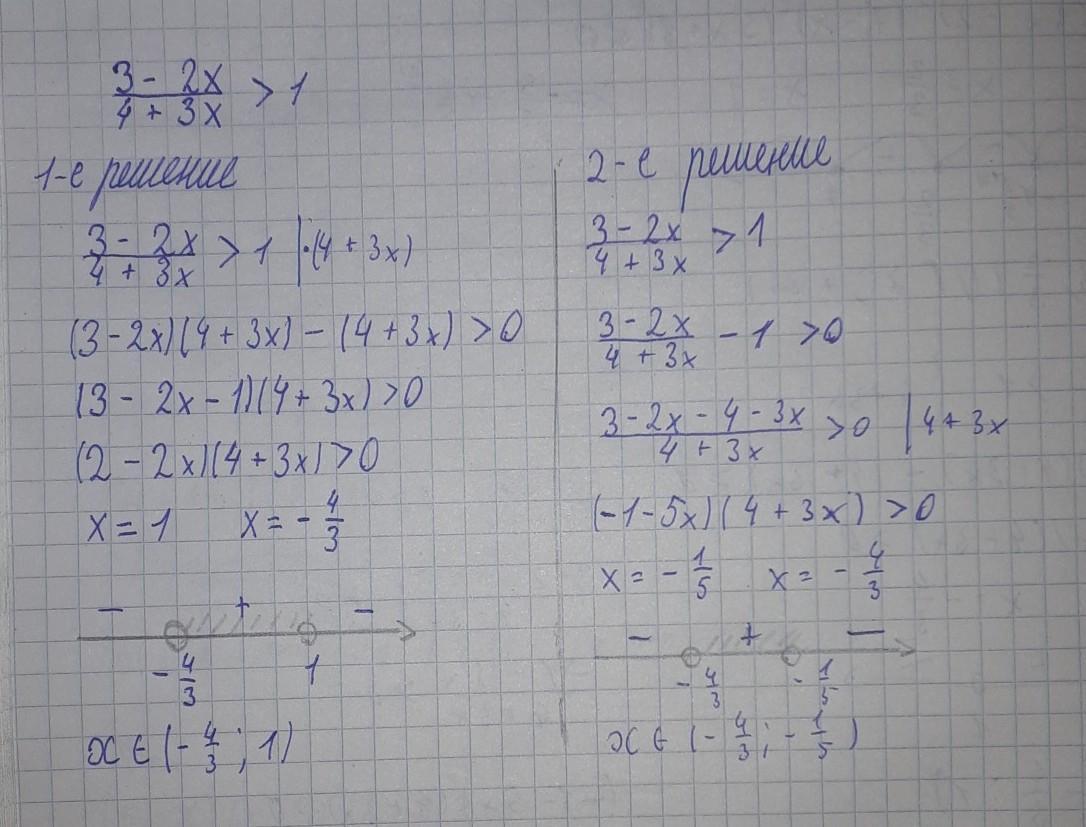 (3 - 2x)/(4 + 3x) > 1
1-е решение
(3 - 2x)/(4 + 3x) > 1 | ·(4 + 3x)
(3 - 2x)(4 + 3x) - (4 + 3x) > 0
(3 - 2x - 1)(4 + 3x) > 0
(2 - 2x)(4 + 3x) > 0
x = 1 x = - 4/3
- + -
- 4/3 1
x ∈ (- 4/3 ; 1)
2-е решение
(3 - 2x)/(4 + 3x) > 1
(3 - 2x)/(4 + 3x) - 1 > 0
(3 - 2x - 4 - 3x)/(4 + 3x) > 0 | 4 + 3x
(-1 - 5x)(4 + 3x) > 0
x = - 1/5 x = - 4/3
- + -
- 4/3 - 1/5
x ∈ (- 4/3 ; - 1/5)